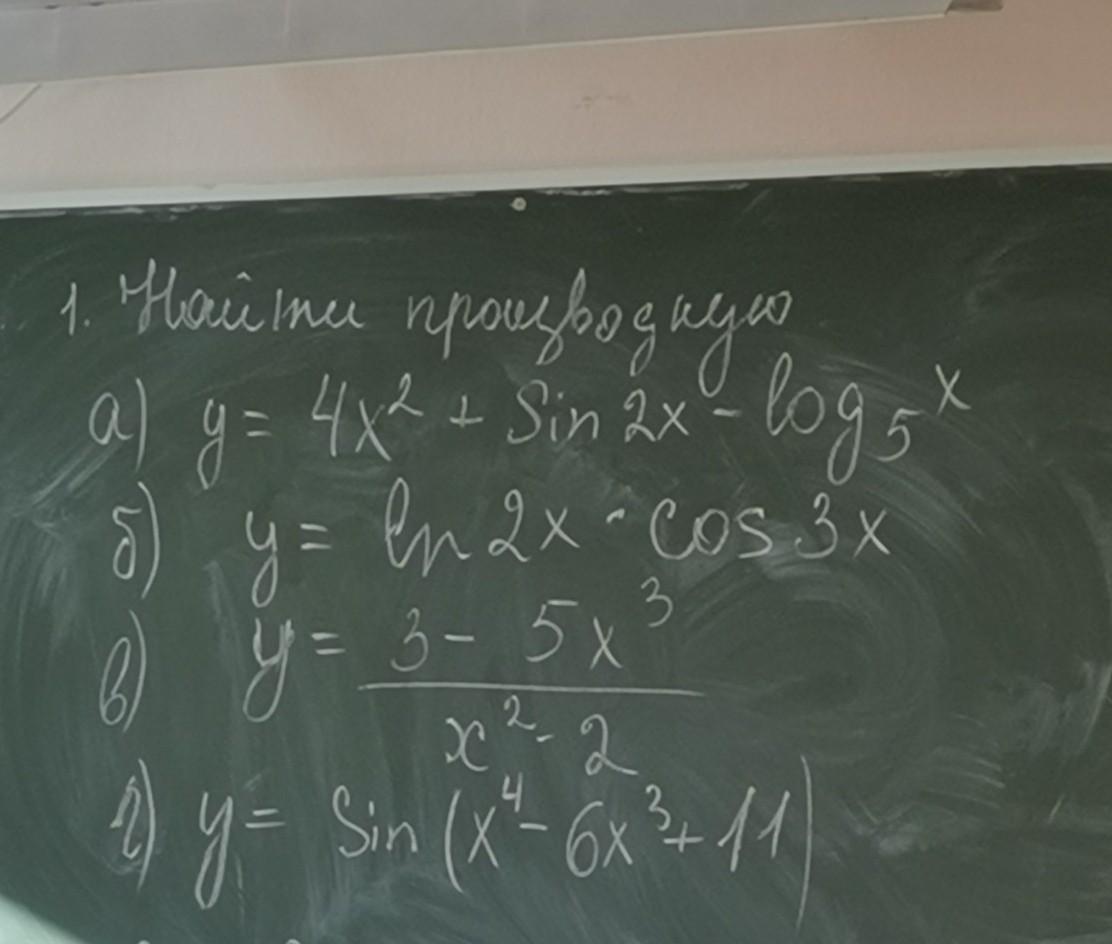 1. Найти производную
а) y = 4x² + Sin 2x - log₅ x
б) y = ln 2x · cos 3x
в) y = 3 - 5x³
x² - 2
г) y = Sin (x⁴ - 6x³ + 11)